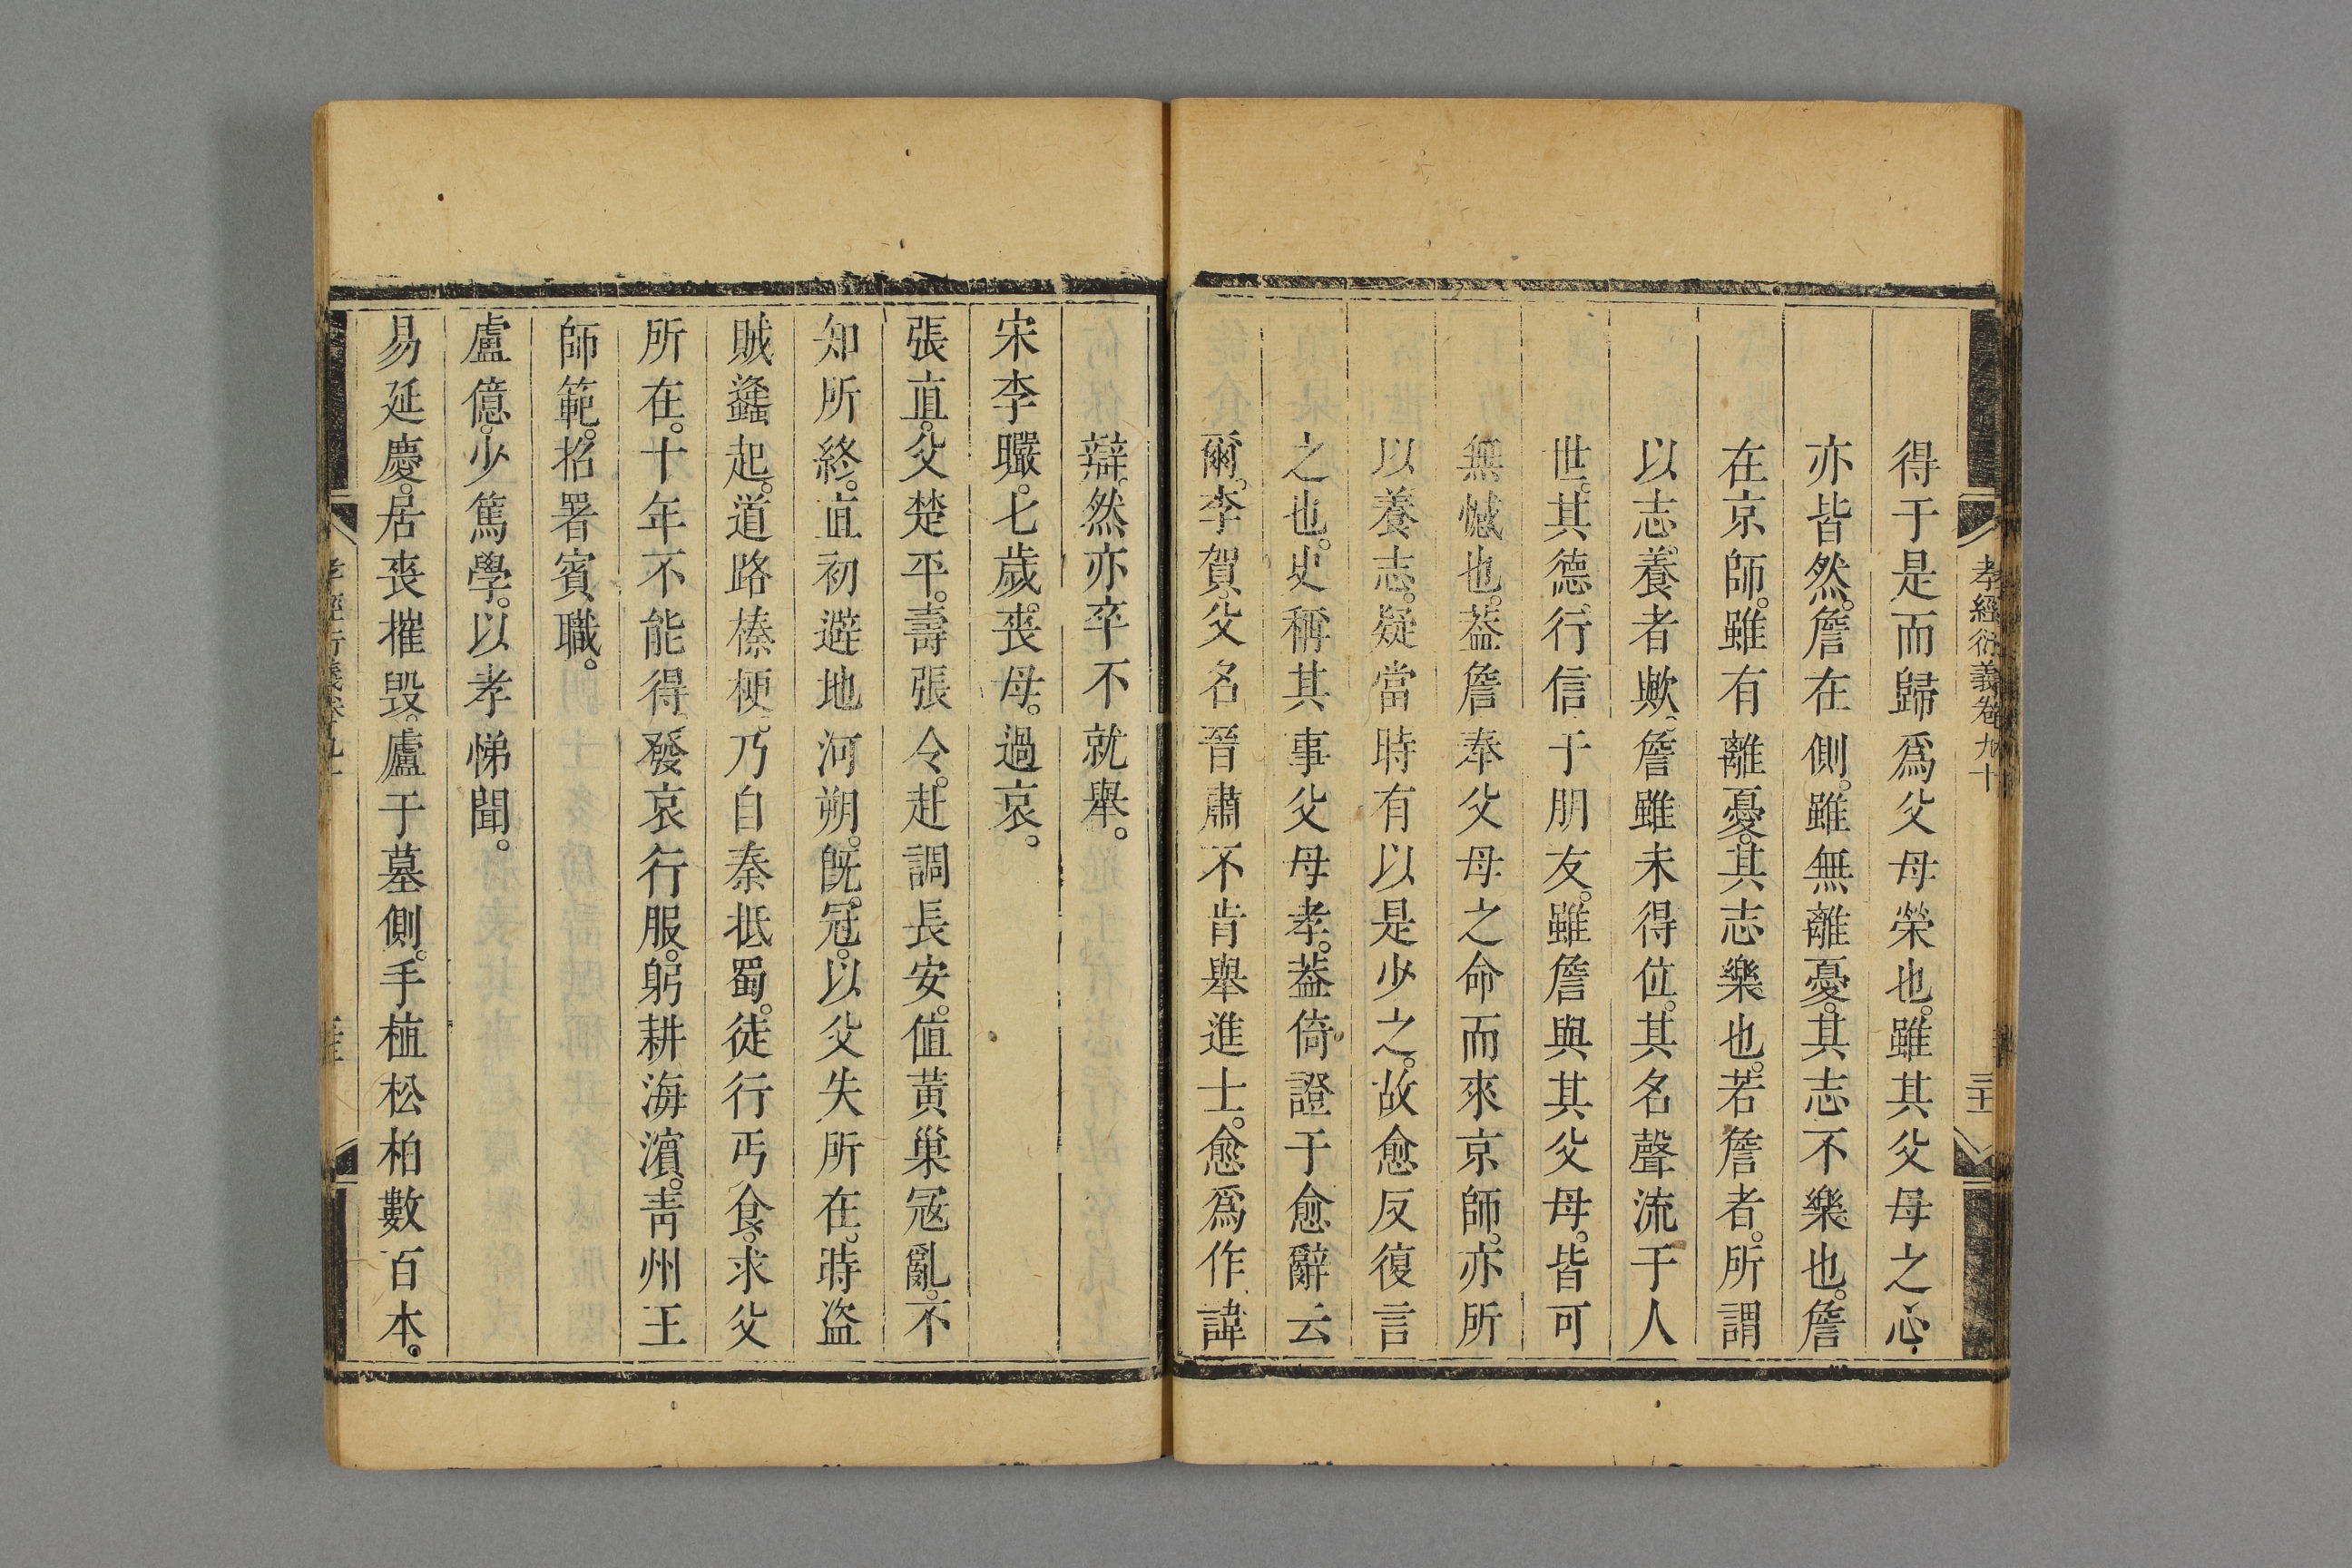 孝經衍義卷九十
得于是而歸爲父母榮也。雖其父母之心
亦皆然。詹在側。雖無離憂。其志不樂也。詹
在京師。雖有離憂。其志樂也。若詹者。所謂
以志養者歟。詹雖未得位。其名聲流于人
世。其德行信于朋友。雖詹與其父母。皆可
無憾也。葢詹奉父母之命而來京師。亦所
以養志。疑當時有以是少之。故愈反復言
之也。史稱其事父母孝。葢倚證于愈辭云
爾。李賀父名晉肅不肯舉進士。愈爲作諱
辯。然亦卒不就舉。
宋李巖。七歲。喪母。過哀。
張直。父楚平。壽張令。赴調長安。值黃巢冦亂。不
知所終。直初避地河朔。旣冠。以父失所在。時盗
賊蠭起。道路榛梗。乃自秦抵蜀。徒行丐食。求父
所在。十年不能得。發哀行服。躬耕海濵。靑州王
師範。招署賓職。
盧億。少篤學。以孝悌聞。
易延慶。居喪摧毁。廬于墓側。手植松柏數百本。